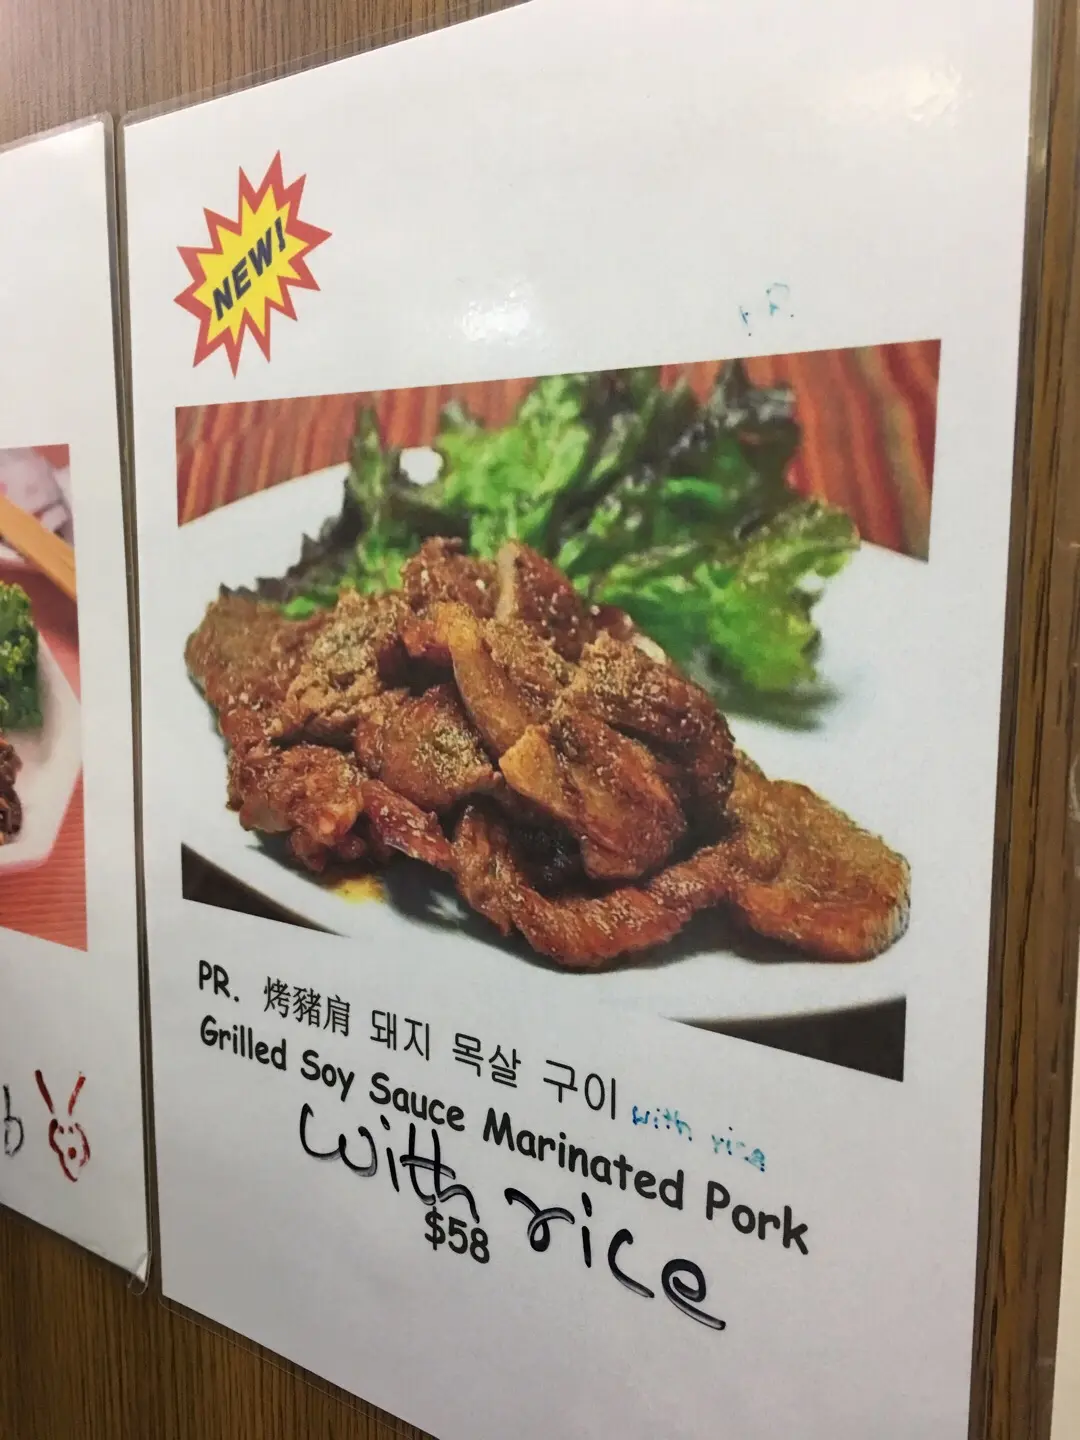 NEW!
PR. 烤豬肩 돼지 목살 구이 with rice
Grilled Soy Sauce Marinated Pork
with rice
$58
b